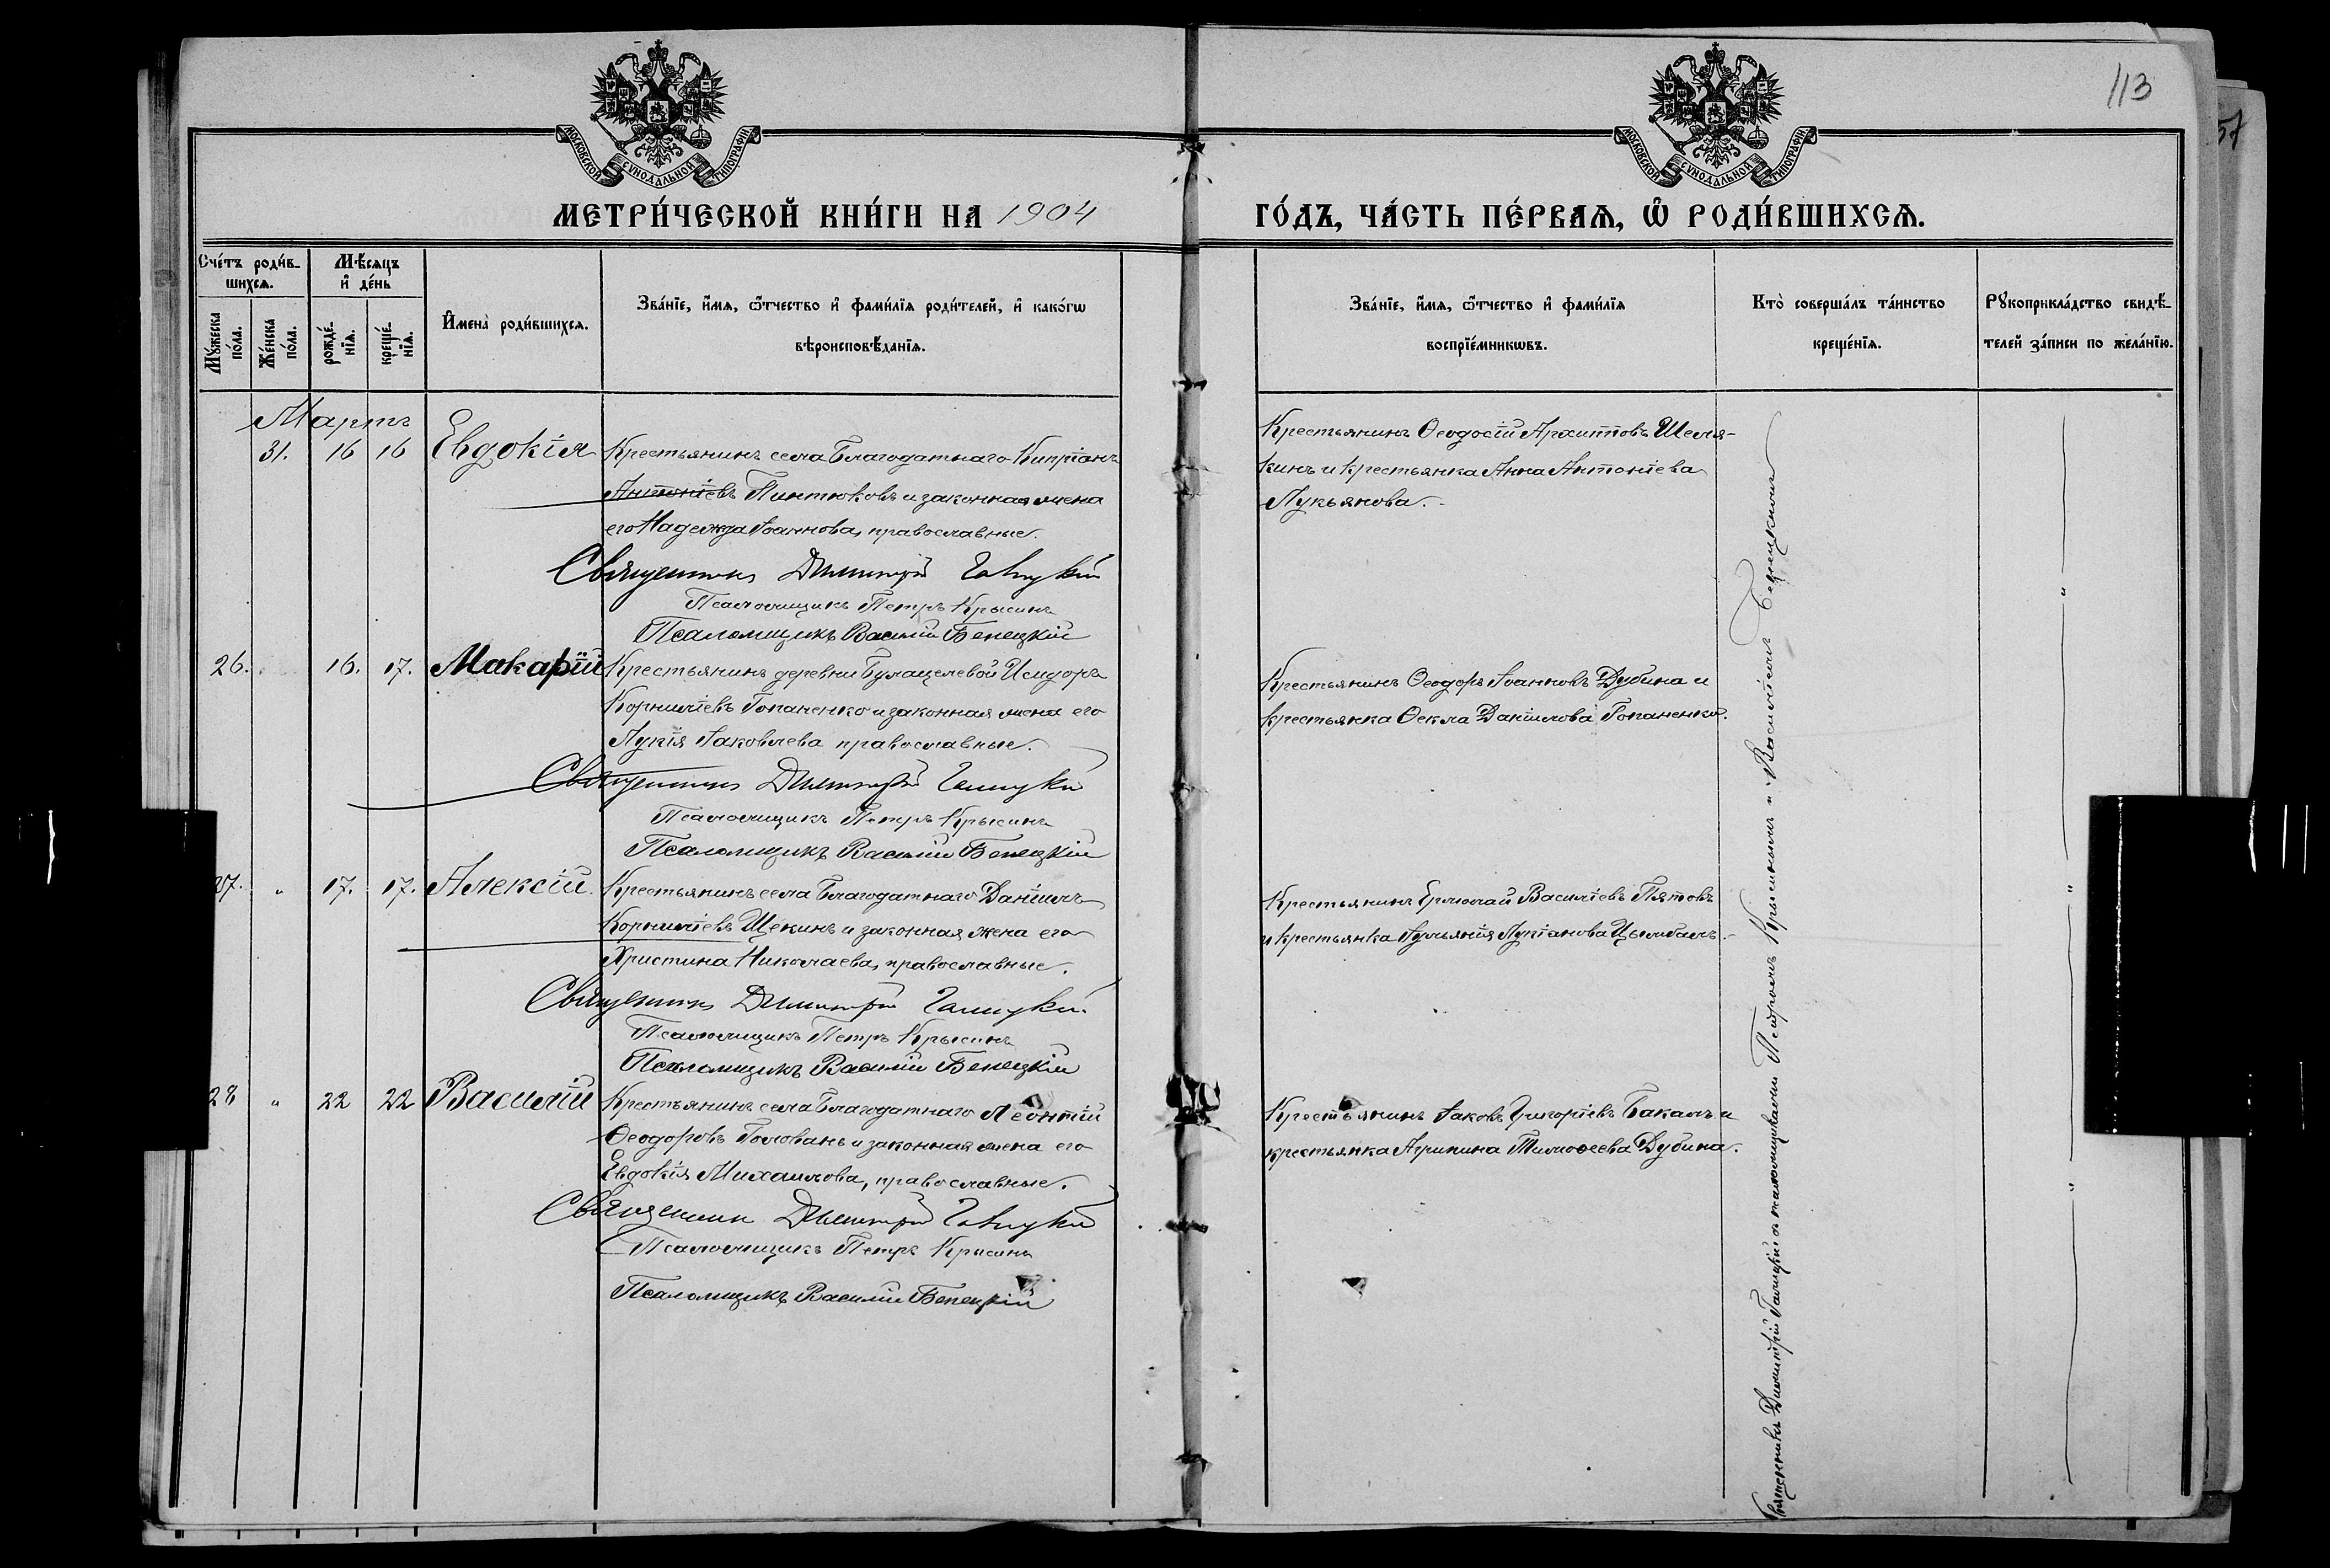 113
57
МОСКОВСКОЙ СѴНОДАЛЬНОЙ ТИПОГРАФІИ
МОСКОВСКОЙ СѴНОДАЛЬНОЙ ТИПОГРАФІИ
МЕТРИ́ЧЕСКОЙ КНИ́ГИ НА 1904
ГО́ДЪ, ЧА́СТЬ ПЕ́РВАЯ, Ѽ РОДИ́ВШИХСѦ.
Сче́тъ роди́в-
шихсѧ.
Мꙋ́жеска
по́ла.
Же́нска
по́ла.
Мѣ́сѧцъ
и҆ де́нь
рожде́-
нїѧ.
креще́-
нїѧ.
И҆мена̀ роди́вшихсѧ.
Зва́нїе, и҆́мѧ, ѻ҆́тчество и҆ фами́лїѧ роди́телей, и҆ како́гѡ
вѣроисповѣ́данїѧ.
Зва́нїе, и҆́мѧ, ѻ҆́тчество и҆ фами́лїѧ
воспрїе́мникѡвъ.
Кто̀ соверша́лъ та́инство
креще́нїѧ.
Рꙋкоприкла́дство свидѣ́-
телей за́писи по жела́нїю.
Мартъ
31. 16 16 Евдокія
Крестьянинъ села Благодатнаго Кипріанъ
Антоніевъ Пинтюковъ и законная жена
его Надежда Іоаннова, православные.
Священникъ Димитрій Галицкій
Псаломщикъ Петръ Крысинъ
Псаломщикъ Василій Бенецкій
Крестьянинъ Ѳеодосій Архипповъ Шеля-
кинъ и крестьянка Анна Антоніева
Лукьянова.
26. 16. 17. Макарій
Крестьянинъ деревни Булацелевой Исидоръ
Корниліевъ Гопаненко и законная жена его
Лукія Іаковлева православные.
Священникъ Димитрій Галицкій
Псаломщикъ Петръ Крысинъ
Псаломщикъ Василій Бенецкій
Крестьянинъ Ѳеодоръ Іоанновъ Дубина и
крестьянка Ѳекла Даніилова Гопаненко.
27. " 17. 17. Алексій
Крестьянинъ села Благодатнаго Даніилъ
Корниліевъ Щекинъ и законная жена его
Христина Николаева, православные.
Священникъ Димитрій Галицкій
Псаломщикъ Петръ Крысинъ
Псаломщикъ Василій Бенецкій
Крестьянинъ Ермолай Василіевъ Пятовъ
и крестьянка Іульянія Лукіанова Цымбалъ.
28 " 22 22 Василій
Крестьянинъ села Благодатнаго Леонтій
Ѳеодоровъ Голованъ и законная жена его
Евдокія Михаилова, православные.
Священникъ Димитрій Галицкій
Псаломщикъ Петръ Крысинъ
Псаломщикъ Василій Бенецкій
Крестьянинъ Іаковъ Григоріевъ Бакалъ и
крестьянка Агрипина Тимоѳеева Дубина.
Священникъ Димитрій Галицкій съ псаломщиками Петромъ Крысинымъ и Василіемъ Бенецкимъ